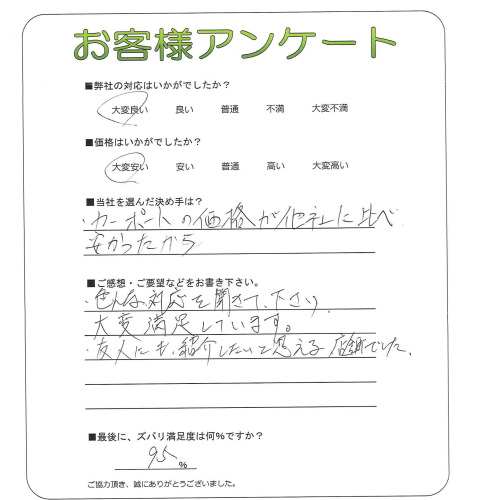 お客様アンケート
■弊社の対応はいかがでしたか？
大変良い 良い 普通 不満 大変不満
■価格はいかがでしたか？
大変安い 安い 普通 高い 大変高い
■当社を選んだ決め手は？
・カーポートの価格が他社に比べ
安かったから
■ご感想・ご要望などをお書き下さい。
・色んな対応を聞きて、下さり、
大変満足しています。
・友人にも、紹介したいと思える店舗でした。
■最後に、ズバリ満足度は何%ですか？
95 %
ご協力頂き、誠にありがとうございました。